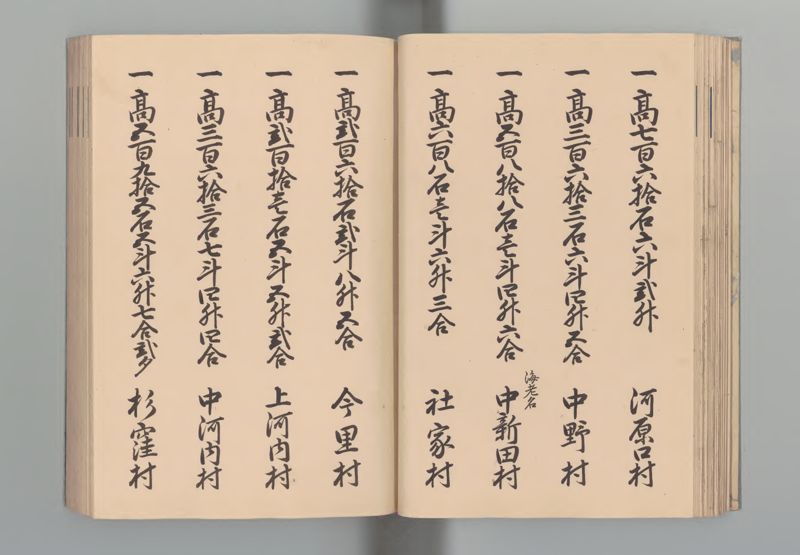 一高七百六拾石六斗弐升 河原口村
一高三百六拾三石六斗四升五合 中野村
一高五百八拾八石壱斗四升六合 海老名 中新田村
一高六百八石壱斗六升三合 社家村
一高弐百六拾石弐斗八升五合 今里村
一高弐百拾壱石五斗五升弐合 上河内村
一高三百六拾三石七斗四升四合 中河内村
一高五百九拾五石五斗六升七合弐夕 杉窪村